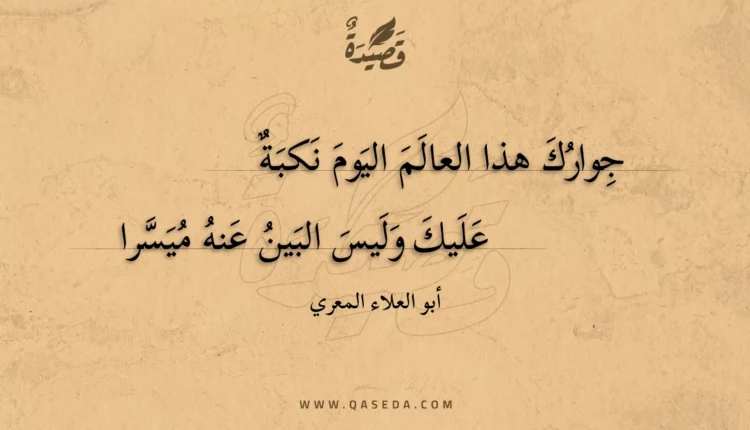 قَصِيْدَةٌ
جِوارُكَ هذا العالَمَ اليَومَ نَكبَةٌ
عَلَيكَ وَلَيسَ البَينُ عَنهُ مُيَسَّرا
أبو العلاء المعري
WWW.QASEDA.COM